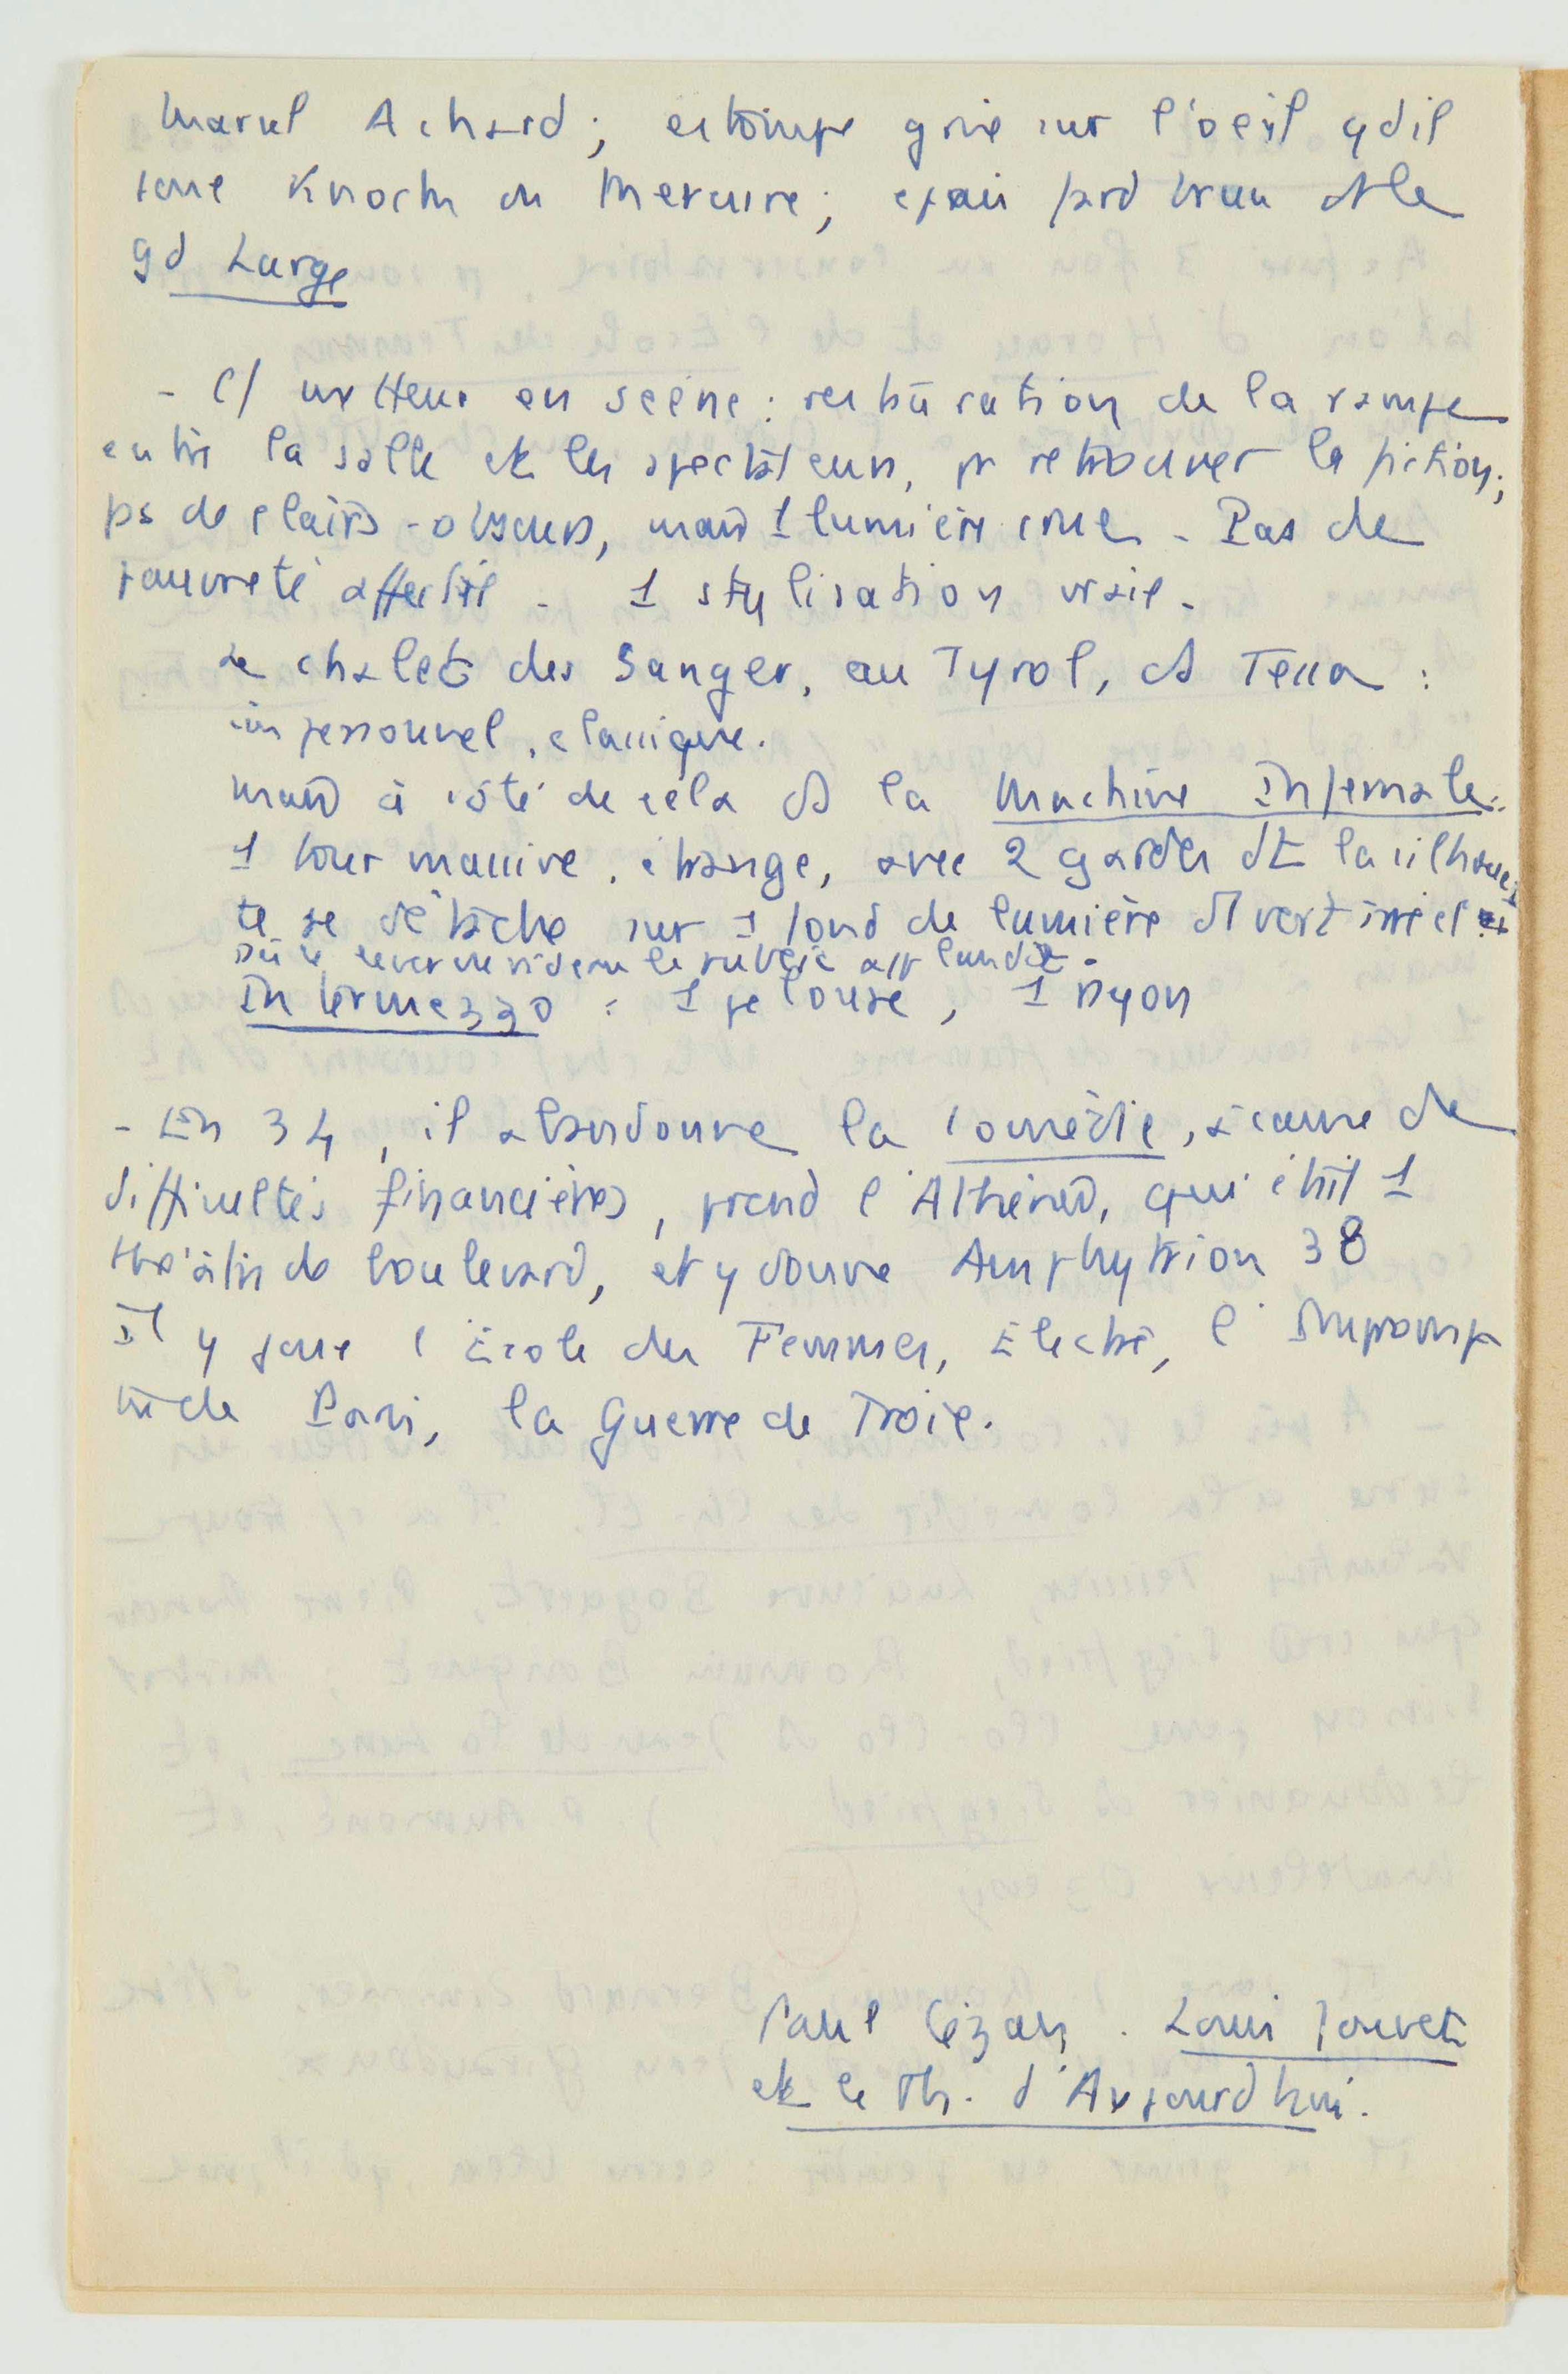 Marcel Achard ; estompe grise sur l'oeil qd il
joue Knock ou Mercure ; épais fard brun ds le
gd Large
- C/ metteur en scène : restauration de la rampe
entre la salle et les spectateurs, pr retrouver la fiction ;
ps de clairs-obscurs, mais 1 lumière crue - Pas de
pauvreté affectée - 1 stylisation vraie -
Le chalet des Sanger, au Tyrol, ds Tessa :
impersonnel, classique.
Mais à côté de cela ds la Machine Infernale :
1 tour massive, étrange, avec 2 gardes dt la silhouet
te se détache sur 1 fond de lumière d'1 vert irréel
Dès le lever de rideau le public applaudit -
Intermezzo : 1 pelouse, 1 rayon
- En 34, il abandonne la Comédie, à cause de
difficultés financières, prend l'Athénée, qui était 1
théâtre de boulevard, et y donne Amphytrion 38
Il y joue l'Ecole des Femmes, Electre, l'Impromp
tu de Paris, la Guerre de Troie.
Paul Cézan. Louis Jouvet
et le Th. d'Aujourdhui.